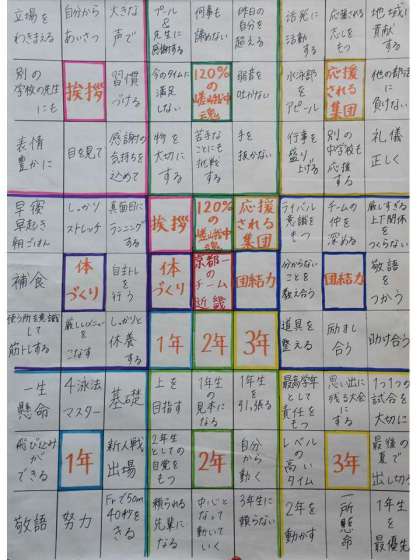 立場を
わきまえる
自分から
あいさつ
大きな
声で
プール
&
先生に
感謝する
何事も
諦めない
昨日の
自分を
超える
活発に
活動
する
応援される
もつ
地域に
貢献
する
別の
学校の先生
にも
挨拶
習慣
づける
今のタイムに
満足
しない
120%
の
魂
弱音を
吐かない
水泳部
を
アピール
応援
される
集団
他の部活
に
負けない
表情
豊かに
目を見て
感謝の
気持ちを
込めて
物を
大切に
する
苦手な
ことにも
挑戦
する
手を
抜かない
行事を
盛り
上げる
別の
中学校も
応援
する
礼儀
正しく
早寝
早起き
朝ごはん
しっかり
ストレッチ
真面目に
ランニング
する
挨拶
120%
の
魂
応援
される
集団
ライバル
意識を
もつ
チームの
仲を
深める
厳しすぎる
上下関係
を
つくらない
補食
体
づくり
自主トレ
を
行う
体
づくり
京都一
の
チーム
近畿
団結力
分からない
ことを
教え合う
団結力
敬語
を
つかう
使う所を意識
して
筋トレする
厳しいメニュー
を
こなす
しっかりと
休養
する
1年
2年
3年
道具を
整える
励まし
合う
助け合う
一生
懸命
4泳法
マスター
基礎
上を
目指す
1年生
の
見本に
なる
1年生
を
引っ張る
最高学年
として
責任を
もつ
思い出に
残る大会
に
する
1つ1つの
試合を
大切に
飛びこみ
が
できる
1年
新人戦
出場
2年生
としての
自覚を
もつ
2年
自分
から
動く
レベル
の
高い
タイム
3年
最後の
夏で
出し切る
敬語
努力
Frで50m
40秒を
きる
頼られる
先輩に
なる
中心と
なって
動いて
いく
3年生に
頼らない
2年を
動かす
一所
懸命
1年生
を
最優先